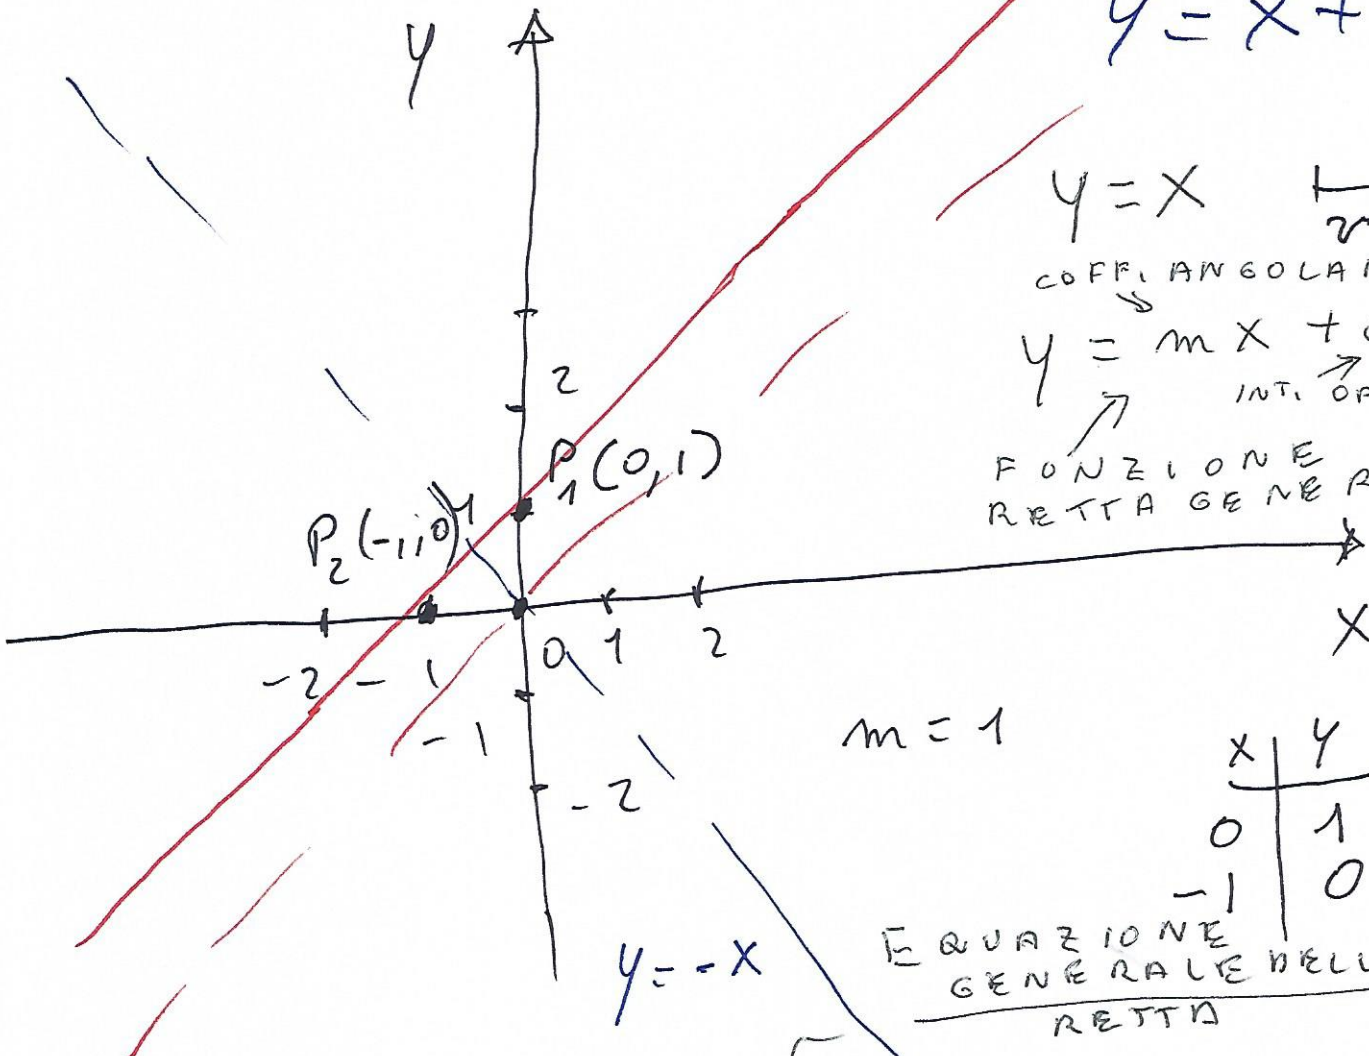 y
y = x +
y = x
COFF. ANGOLA
y = m x +
INT. OR
FONZIONE
RETTA GENER
2
P1(0,1)
P2(-1,0)
1
-2 -1 0 1 2
x
-1
-2
m = 1
x | y
0 | 1
-1 | 0
y = -x
EQUAZIONE
GENERALE DELL
RETTA